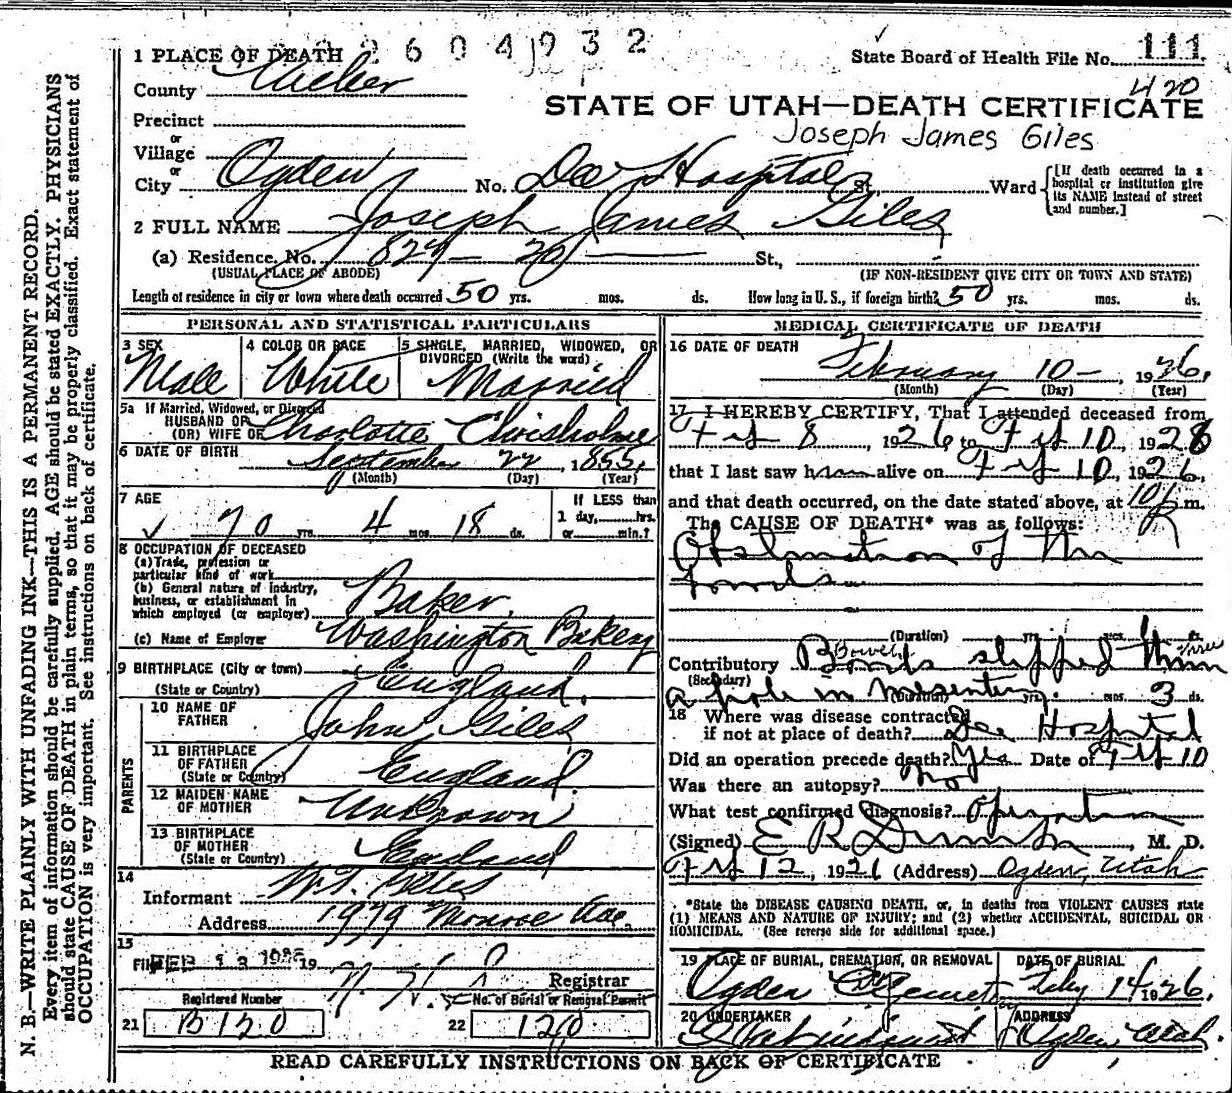 2604932
State Board of Health File No. 111
420
1 PLACE OF DEATH
County Weber
STATE OF UTAH—DEATH CERTIFICATE
Joseph James Giles
Precinct
or
Village
or
City Ogden No. Dee Hospital St. Ward
[If death occurred in a hospital or institution give its NAME instead of street and number.]
2 FULL NAME Joseph James Giles
(a) Residence. No. 824 — 20 St.,
(USUAL PLACE OF ABODE) (IF NON-RESIDENT GIVE CITY OR TOWN AND STATE)
Length of residence in city or town where death occurred 50 yrs. mos. ds. How long in U. S., if foreign birth? 50 yrs. mos. ds.
PERSONAL AND STATISTICAL PARTICULARS
3 SEX
Male
4 COLOR OR RACE
White
5 SINGLE, MARRIED, WIDOWED, OR
DIVORCED (Write the word)
Married
5a If Married, Widowed, or Divorced
HUSBAND OF
(OR) WIFE OF Charlotte Chrisholme
6 DATE OF BIRTH September 22, 1855,
(Month) (Day) (Year)
7 AGE
70 yrs. 4 mos. 18 ds.
If LESS than
1 day, hrs.
or min.?
8 OCCUPATION OF DECEASED
(a) Trade, profession or
particular kind of work
(b) General nature of industry,
business, or establishment in
which employed (or employer) Baker.
(c) Name of Employer Washington Bakery
9 BIRTHPLACE (City or town)
(State or Country) England.
PARENTS
10 NAME OF
FATHER John Giles
11 BIRTHPLACE
OF FATHER
(State or Country) England
12 MAIDEN NAME
OF MOTHER Unknown
13 BIRTHPLACE
OF MOTHER
(State or Country) England
14
Informant W. T. Giles
Address 1979 Monroe Ave.
15
Filed FEB 13 1926 19
Registrar
Registered Number No. of Burial or Removal Permit
21 B120 22 120
MEDICAL CERTIFICATE OF DEATH
16 DATE OF DEATH
February 10 - , 1926.
(Month) (Day) (Year)
17 I HEREBY CERTIFY, That I attended deceased from
Feb 8 1926 to Feb 10, 1926
that I last saw him alive on Feb 10, 1926,
and that death occurred, on the date stated above, at 10 P m.
The CAUSE OF DEATH* was as follows:
Obstruction of the
bowels
(Duration) yrs. mos. ds.
Contributory Bowels slipped thru
(Secondary)
a hole in mesentery. (Duration) yrs. mos. 3 ds.
18 Where was disease contracted
if not at place of death? Dee Hospital
Did an operation precede death? Yes Date of Feb 10
Was there an autopsy? No
What test confirmed diagnosis? Operation
(Signed) E R , M. D.
Feb 12, 1926 (Address) Ogden, Utah
*State the DISEASE CAUSING DEATH, or, in deaths from VIOLENT CAUSES state
(1) MEANS AND NATURE OF INJURY; and (2) whether ACCIDENTAL, SUICIDAL OR
HOMICIDAL. (See reverse side for additional space.)
19 PLACE OF BURIAL, CREMATION, OR REMOVAL DATE OF BURIAL
Ogden Feby 14 1926.
20 UNDERTAKER ADDRESS
Ogden, Utah.
READ CAREFULLY INSTRUCTIONS ON BACK OF CERTIFICATE
N. B.—WRITE PLAINLY WITH UNFADING INK—THIS IS A PERMANENT RECORD.
Every item of information should be carefully supplied. AGE should be stated EXACTLY. PHYSICIANS
should state CAUSE OF DEATH in plain terms, so that it may be properly classified. Exact statement of
OCCUPATION is very important. See instructions on back of certificate.